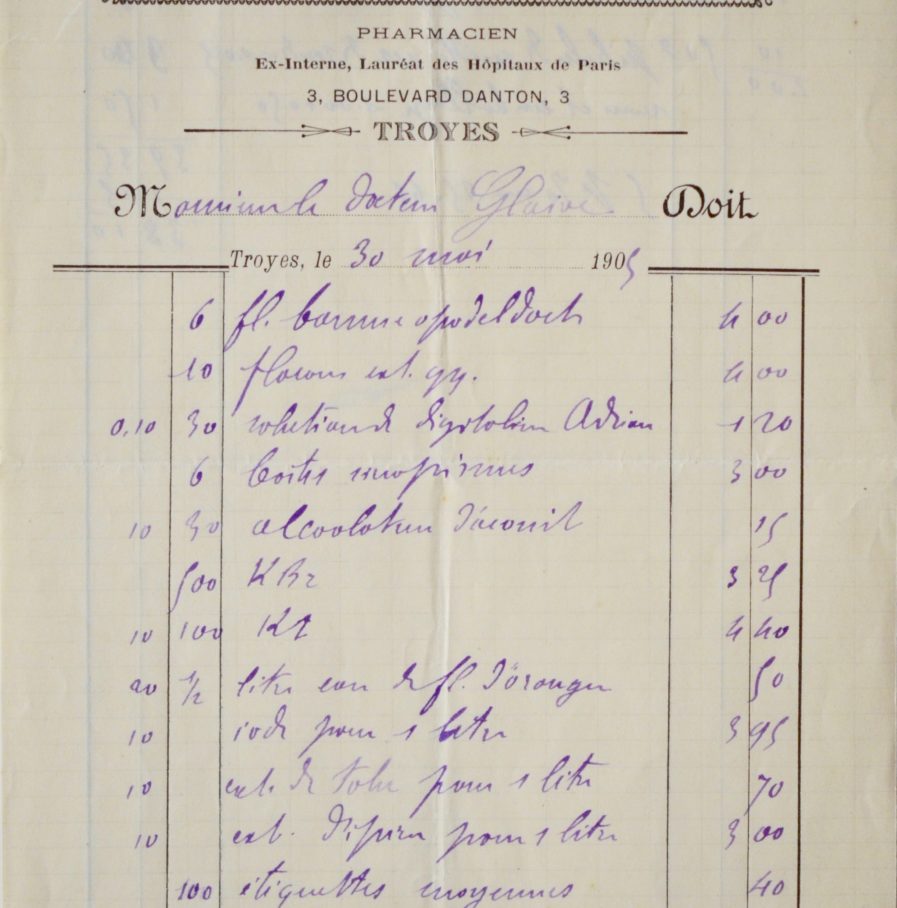 PHARMACIEN
Ex-Interne, Lauréat des Hôpitaux de Paris
3, BOULEVARD DANTON, 3
TROYES
Monsieur le docteur Doit
Troyes, le 30 mai 1905
6 fl. baume opodeldoch 4 00
10 flacons ext. 4 00
0,10 30 solution de digitaline Adrian 1 20
6 boites sinapismes 3 00
10 30 alcoolature d'aconit 15
500 KBr 3 25
10 100 KI 4 40
20 1/2 litre eau de fl. d'oranger 50
10 iode pour 1 litre 3 95
10 ext. de Tolu pour 1 litre 70
10 ext. pour 1 litre 3 00
100 étiquettes moyennes 40